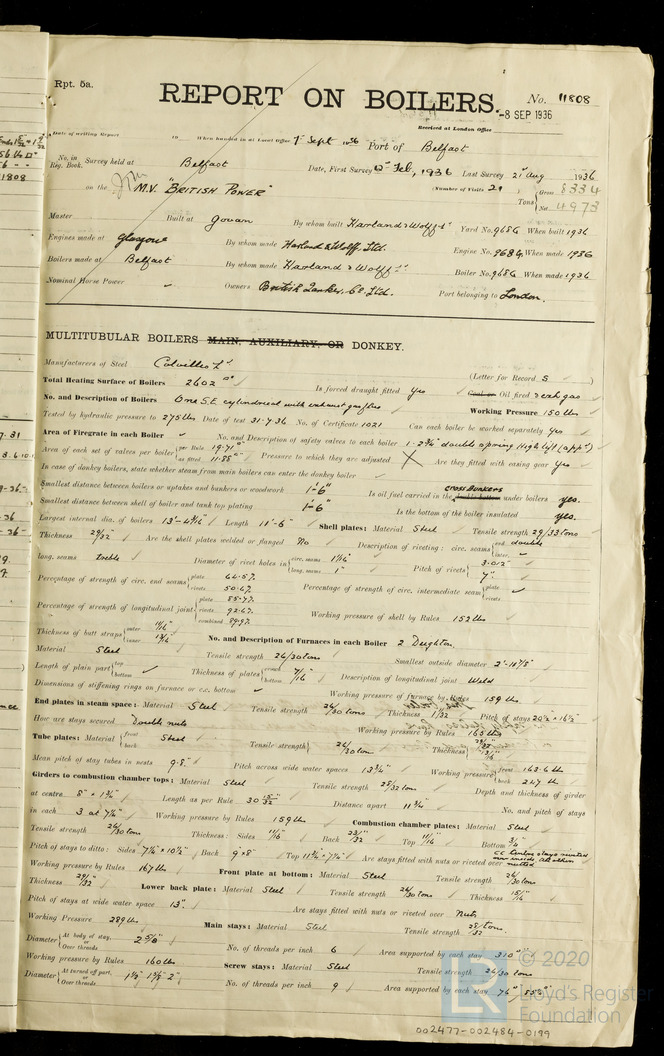 Rpt. 5a.
REPORT ON BOILERS.
No. 11808
-8 SEP 1936
Received at London Office
Date of writing Report 19 When handed in at Local Office 7 Sept 1936 Port of Belfast
No. in Reg. Book. Survey held at Belfast Date, First Survey Feb, 1936 Last Survey 21 Aug 1936
on the M.V. "BRITISH POWER" (Number of Visits 21) Tons Gross 8334 Net 4973
Master Built at Govan By whom built Harland & Wolff Ld Yard No. 968G When built 1936
Engines made at Glasgow By whom made Harland & Wolff, Ltd. Engine No. 968G When made 1936
Boilers made at Belfast By whom made Harland & Wolff Ld Boiler No. 968G When made 1936
Nominal Horse Power Owners British Tanker Co. Ltd. Port belonging to London.
MULTITUBULAR BOILERS MAIN, AUXILIARY, OR DONKEY.
Manufacturers of Steel Colvilles Ld (Letter for Record S)
Total Heating Surface of Boilers 2602 Is forced draught fitted yes Coal or Oil fired & exh gas
No. and Description of Boilers One S.E. cylindrical with exhaust gas flue Working Pressure 150 lbs
Tested by hydraulic pressure to 275 lbs. Date of test 31-7-36 No. of Certificate 1021 Can each boiler be worked separately yes
Area of Firegrate in each Boiler No. and Description of safety valves to each boiler 1-2¾" double spring High lift (app)
Area of each set of valves per boiler per Rule 19.71 as fitted 11.88 Pressure to which they are adjusted Are they fitted with easing gear yes
In case of donkey boilers, state whether steam from main boilers can enter the donkey boiler
Smallest distance between boilers or uptakes and bunkers or woodwork 1'-6" Is oil fuel carried in the double bottom cross bunkers under boilers yes.
Smallest distance between shell of boiler and tank top plating 1'-6" Is the bottom of the boiler insulated yes.
Largest internal dia. of boilers Length 11'-6" Shell plates: Material Steel Tensile strength 29/33 tons
Thickness 29/32 Are the shell plates welded or flanged No Description of riveting: circ. seams end double inter.
long. seams treble Diameter of rivet holes in circ. seams 1 1/16" long. seams 1" Pitch of rivets 3.012" 7"
Percentage of strength of circ. end seams plate 64.5% rivets 50.6% Percentage of strength of circ. intermediate seam plate rivets
Percentage of strength of longitudinal joint plate 85.7% rivets 92.6% combined 89.9% Working pressure of shell by Rules 152 lbs
Thickness of butt straps outer 11/16 inner 13/16 No. and Description of Furnaces in each Boiler 2 Deighton
Material Steel Tensile strength 26/30 tons Smallest outside diameter
Length of plain part top bottom Thickness of plates crown bottom 7/16 Description of longitudinal joint Weld
Dimensions of stiffening rings on furnace or c.c. bottom Working pressure of furnace by Rules 159 lbs
End plates in steam space: Material Steel Tensile strength 26/30 tons Thickness 1/32 Pitch of stays 20½ × 16½
How are stays secured Double nuts Working pressure by Rules 165 lbs
Tube plates: Material front back Steel Tensile strength 26/30 tons Thickness 29/32 13/16"
Mean pitch of stay tubes in nests 9.8" Pitch across wide water spaces 13¾" Working pressure front 163.6 lbs back 227 lbs
Girders to combustion chamber tops: Material Steel Tensile strength 28/32 tons Depth and thickness of girder
at centre 8" × 1¾" Length as per Rule 30 15/32 Distance apart 11¾" No. and pitch of stays
in each 3 at 7¼" Working pressure by Rules 159 lbs Combustion chamber plates: Material Steel
Tensile strength 26/30 tons Thickness: Sides 11/16 Back 23/32 Top 11/16 Bottom 3/4"
Pitch of stays to ditto: Sides 7¼ × 10½ Back 9" × 8" Top 11¾ × 7¼" Are stays fitted with nuts or riveted over
Working pressure by Rules 167 lbs Front plate at bottom: Material Steel Tensile strength 26/30 tons
Thickness 29/32 Lower back plate: Material Steel Tensile strength 26/30 tons Thickness 15/16
Pitch of stays at wide water space 13". Are stays fitted with nuts or riveted over Nuts.
Working Pressure 289 lbs Main stays: Material Steel Tensile strength 28/32 tons
Diameter At body of stay, or Over threads 2 5/8" No. of threads per inch 6 Area supported by each stay 310
Working pressure by Rules 160 lbs Screw stays: Material Steel Tensile strength 26/30 tons
Diameter At turned off part, or Over threads No. of threads per inch 9 Area supported by each stay
© 2020
LR Lloyd's Register
Foundation
002477-002484-0199